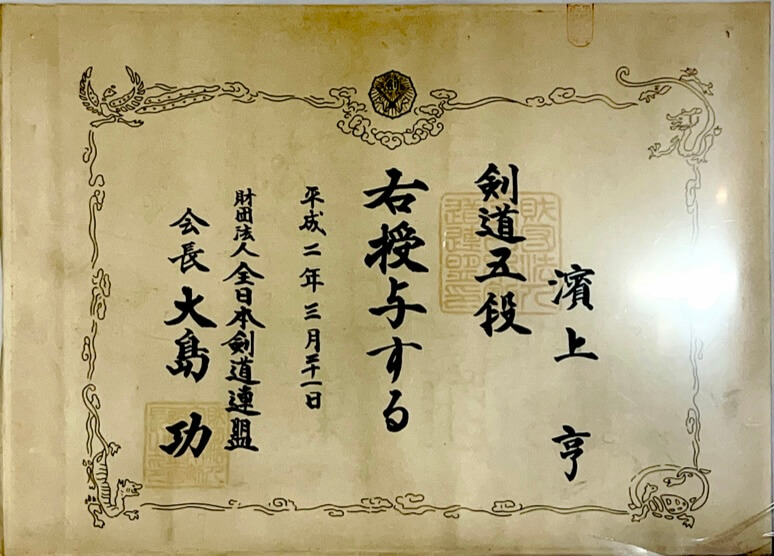 濱上 亨
剣道五段
右授与する
平成二年三月三十一日
財団法人 全日本剣道連盟
会長 大島 功